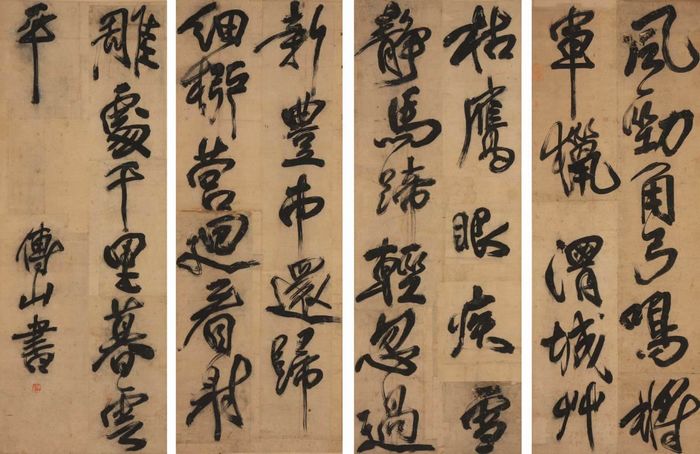 風勁角弓鳴將
軍獵渭城艸
枯鷹眼疾雪
靜馬蹄輕忽過
新豐市還歸
細柳營迴看射
雕處千里暮雲
平
傅山書